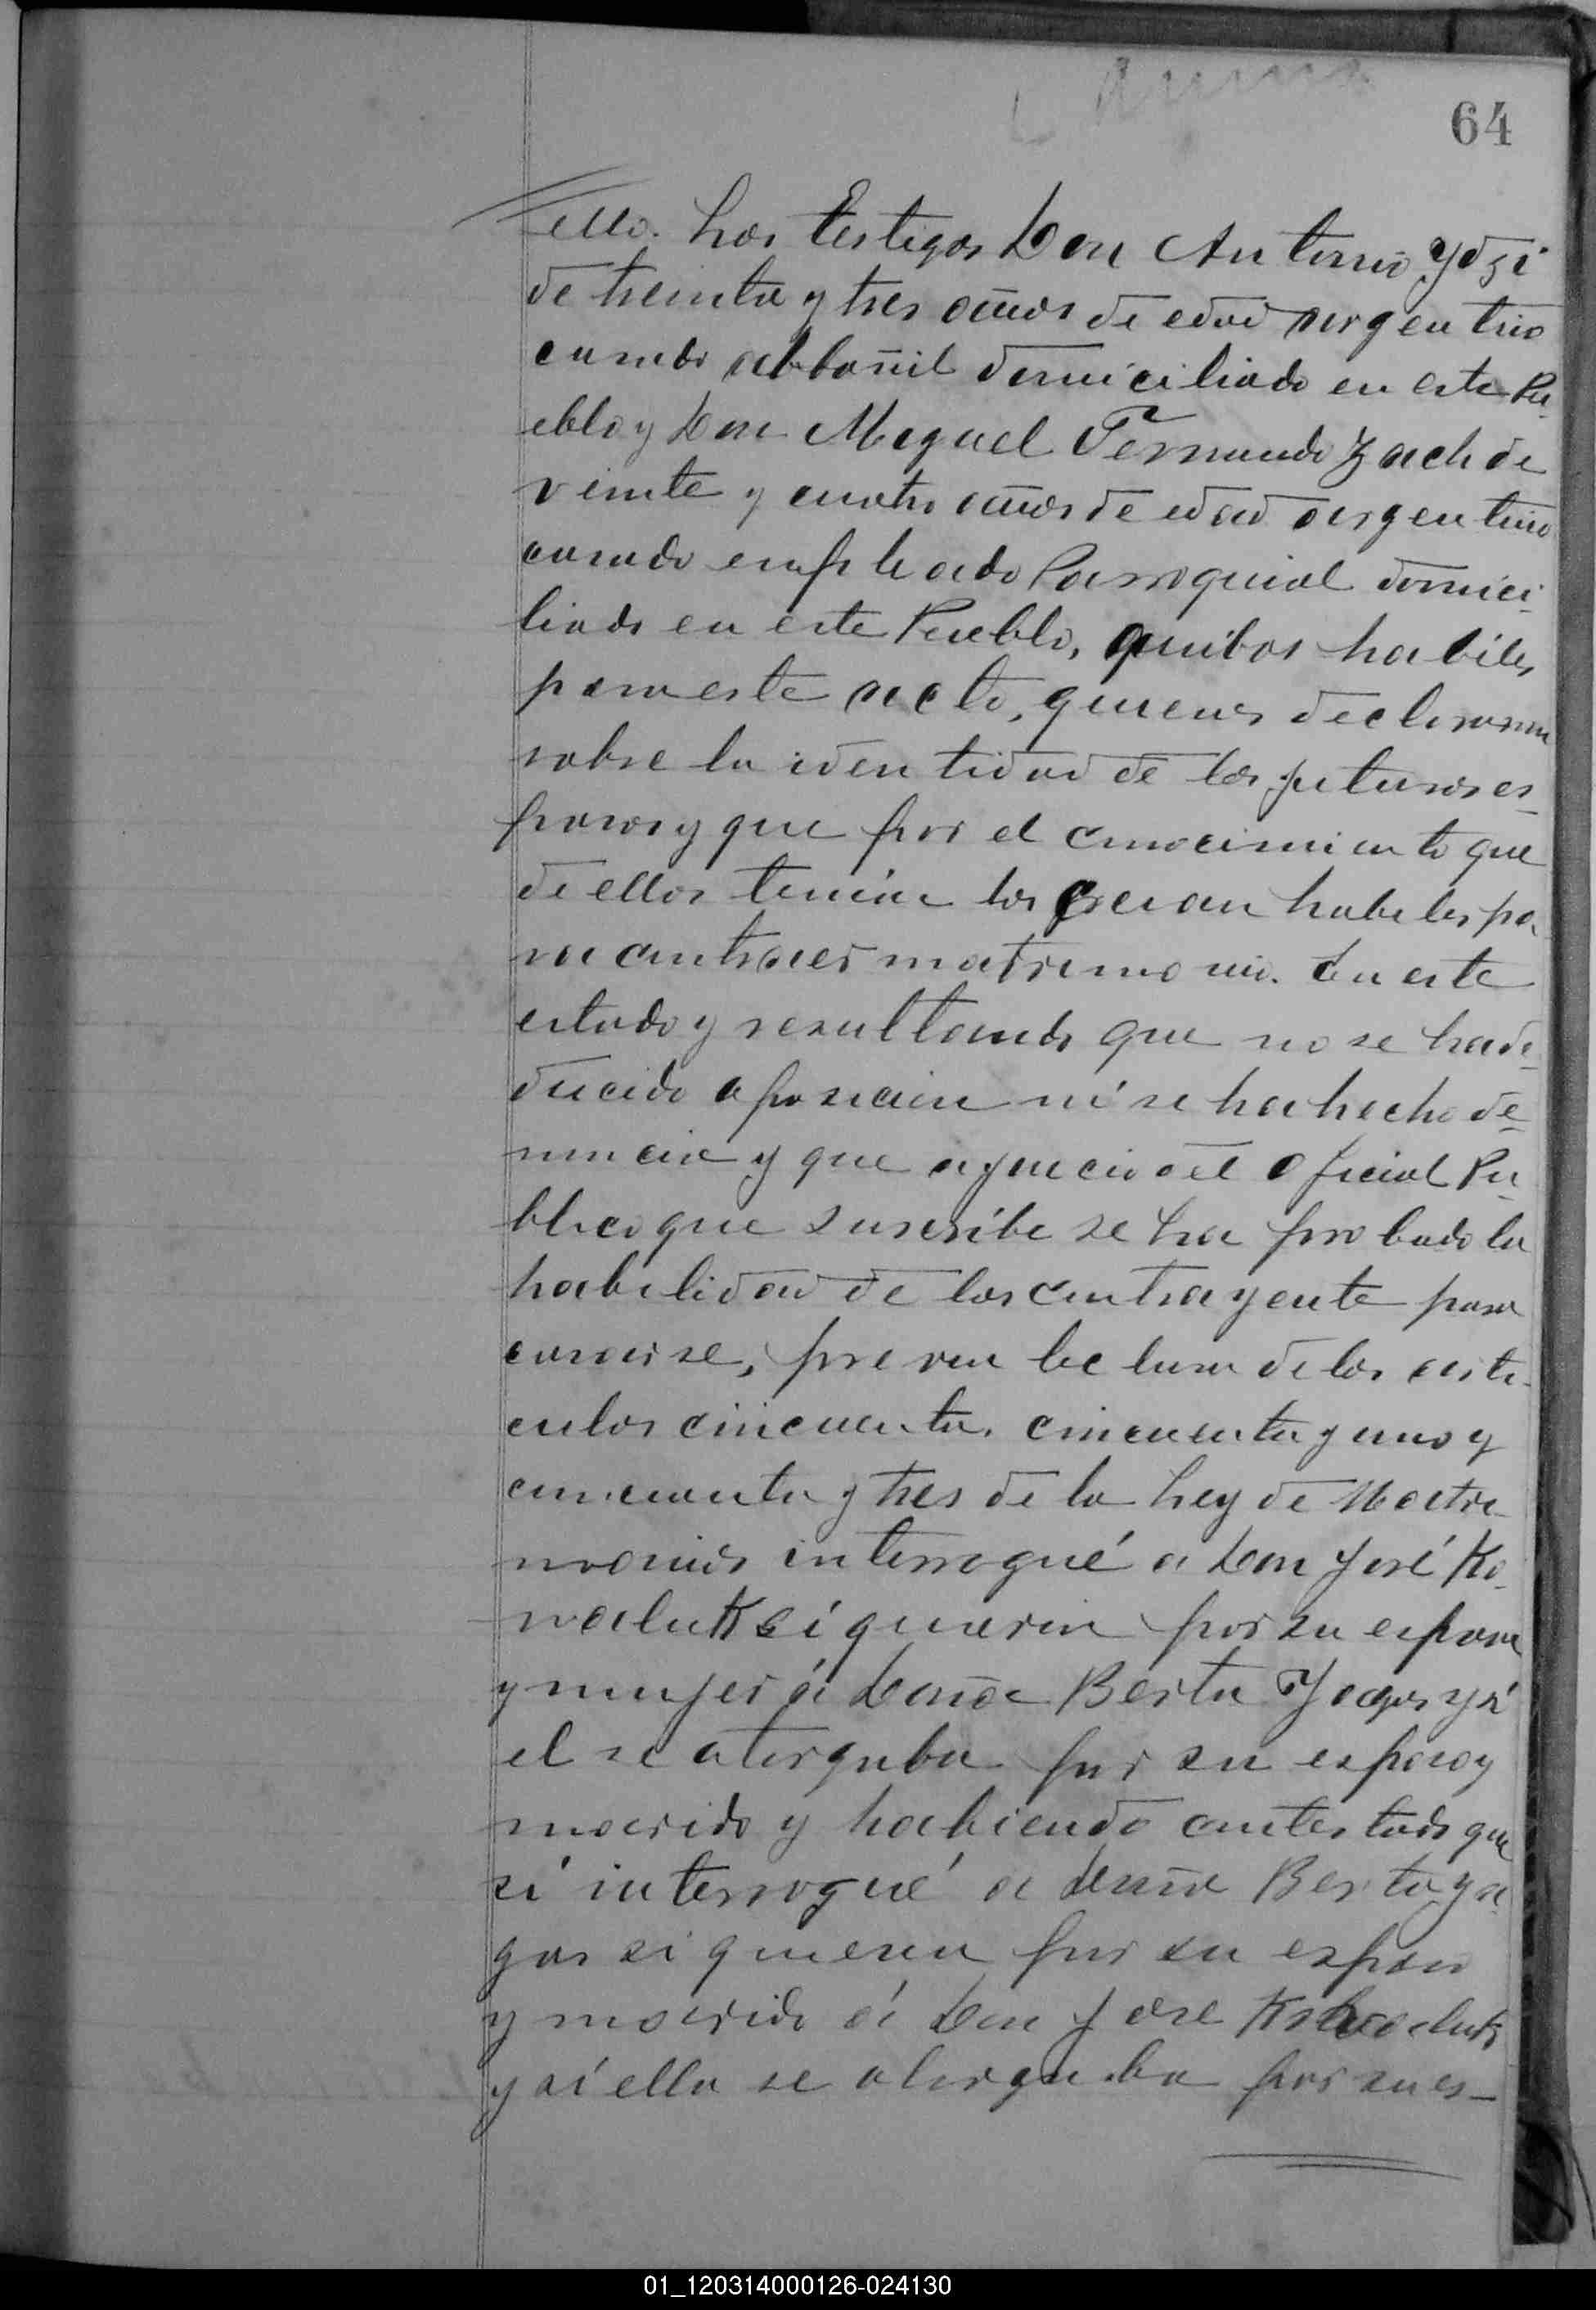 64
ello. Los testigos Don Antonio Yozi
de treinta y tres años de edad argentino
casado albañil domiciliado en este Pu-
eblo y Don Miguel Fernando Zach de
veinte y cuatro años de edad argentino
casado empleado Parroquial domici-
liado en este Pueblo, ambos habiles
para este acto, quienes declararon
sobre la identidad de los futuros es-
posos y que por el conocimiento que
de ellos tenian los creian habiles pa-
ra contraer matrimonio. En este
estado y resultando que no se ha de-
ducido oposicion ni se ha hecho de-
nuncia y que a juicio del Oficial Pu-
blico que suscribe se ha probado la
habilidad de los contrayente para
casarse, previa lectura de los arti-
culos cincuenta, cincuenta y uno y
cincuenta y tres de la Ley de Matri-
monios interrogué a Don José Ko-
waluk si queria por su esposa
y mujer á Doña Berta Yagas y si
el se otorgaba por su esposo y
marido y habiendo contestado que
si interrogué a Doña Berta Ya-
gas si queria por su esposo
y marido á Don Jose Kowaluk
y si ella se otorgaba por su es-
01_120314000126-024130